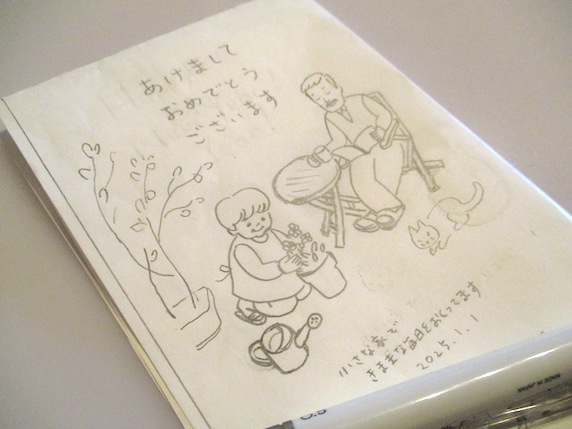 あけまして
おめでとう
ございます
小さな家で
きままな毎日をおくってます
2025.1.1
0.5
MADE IN JAPAN